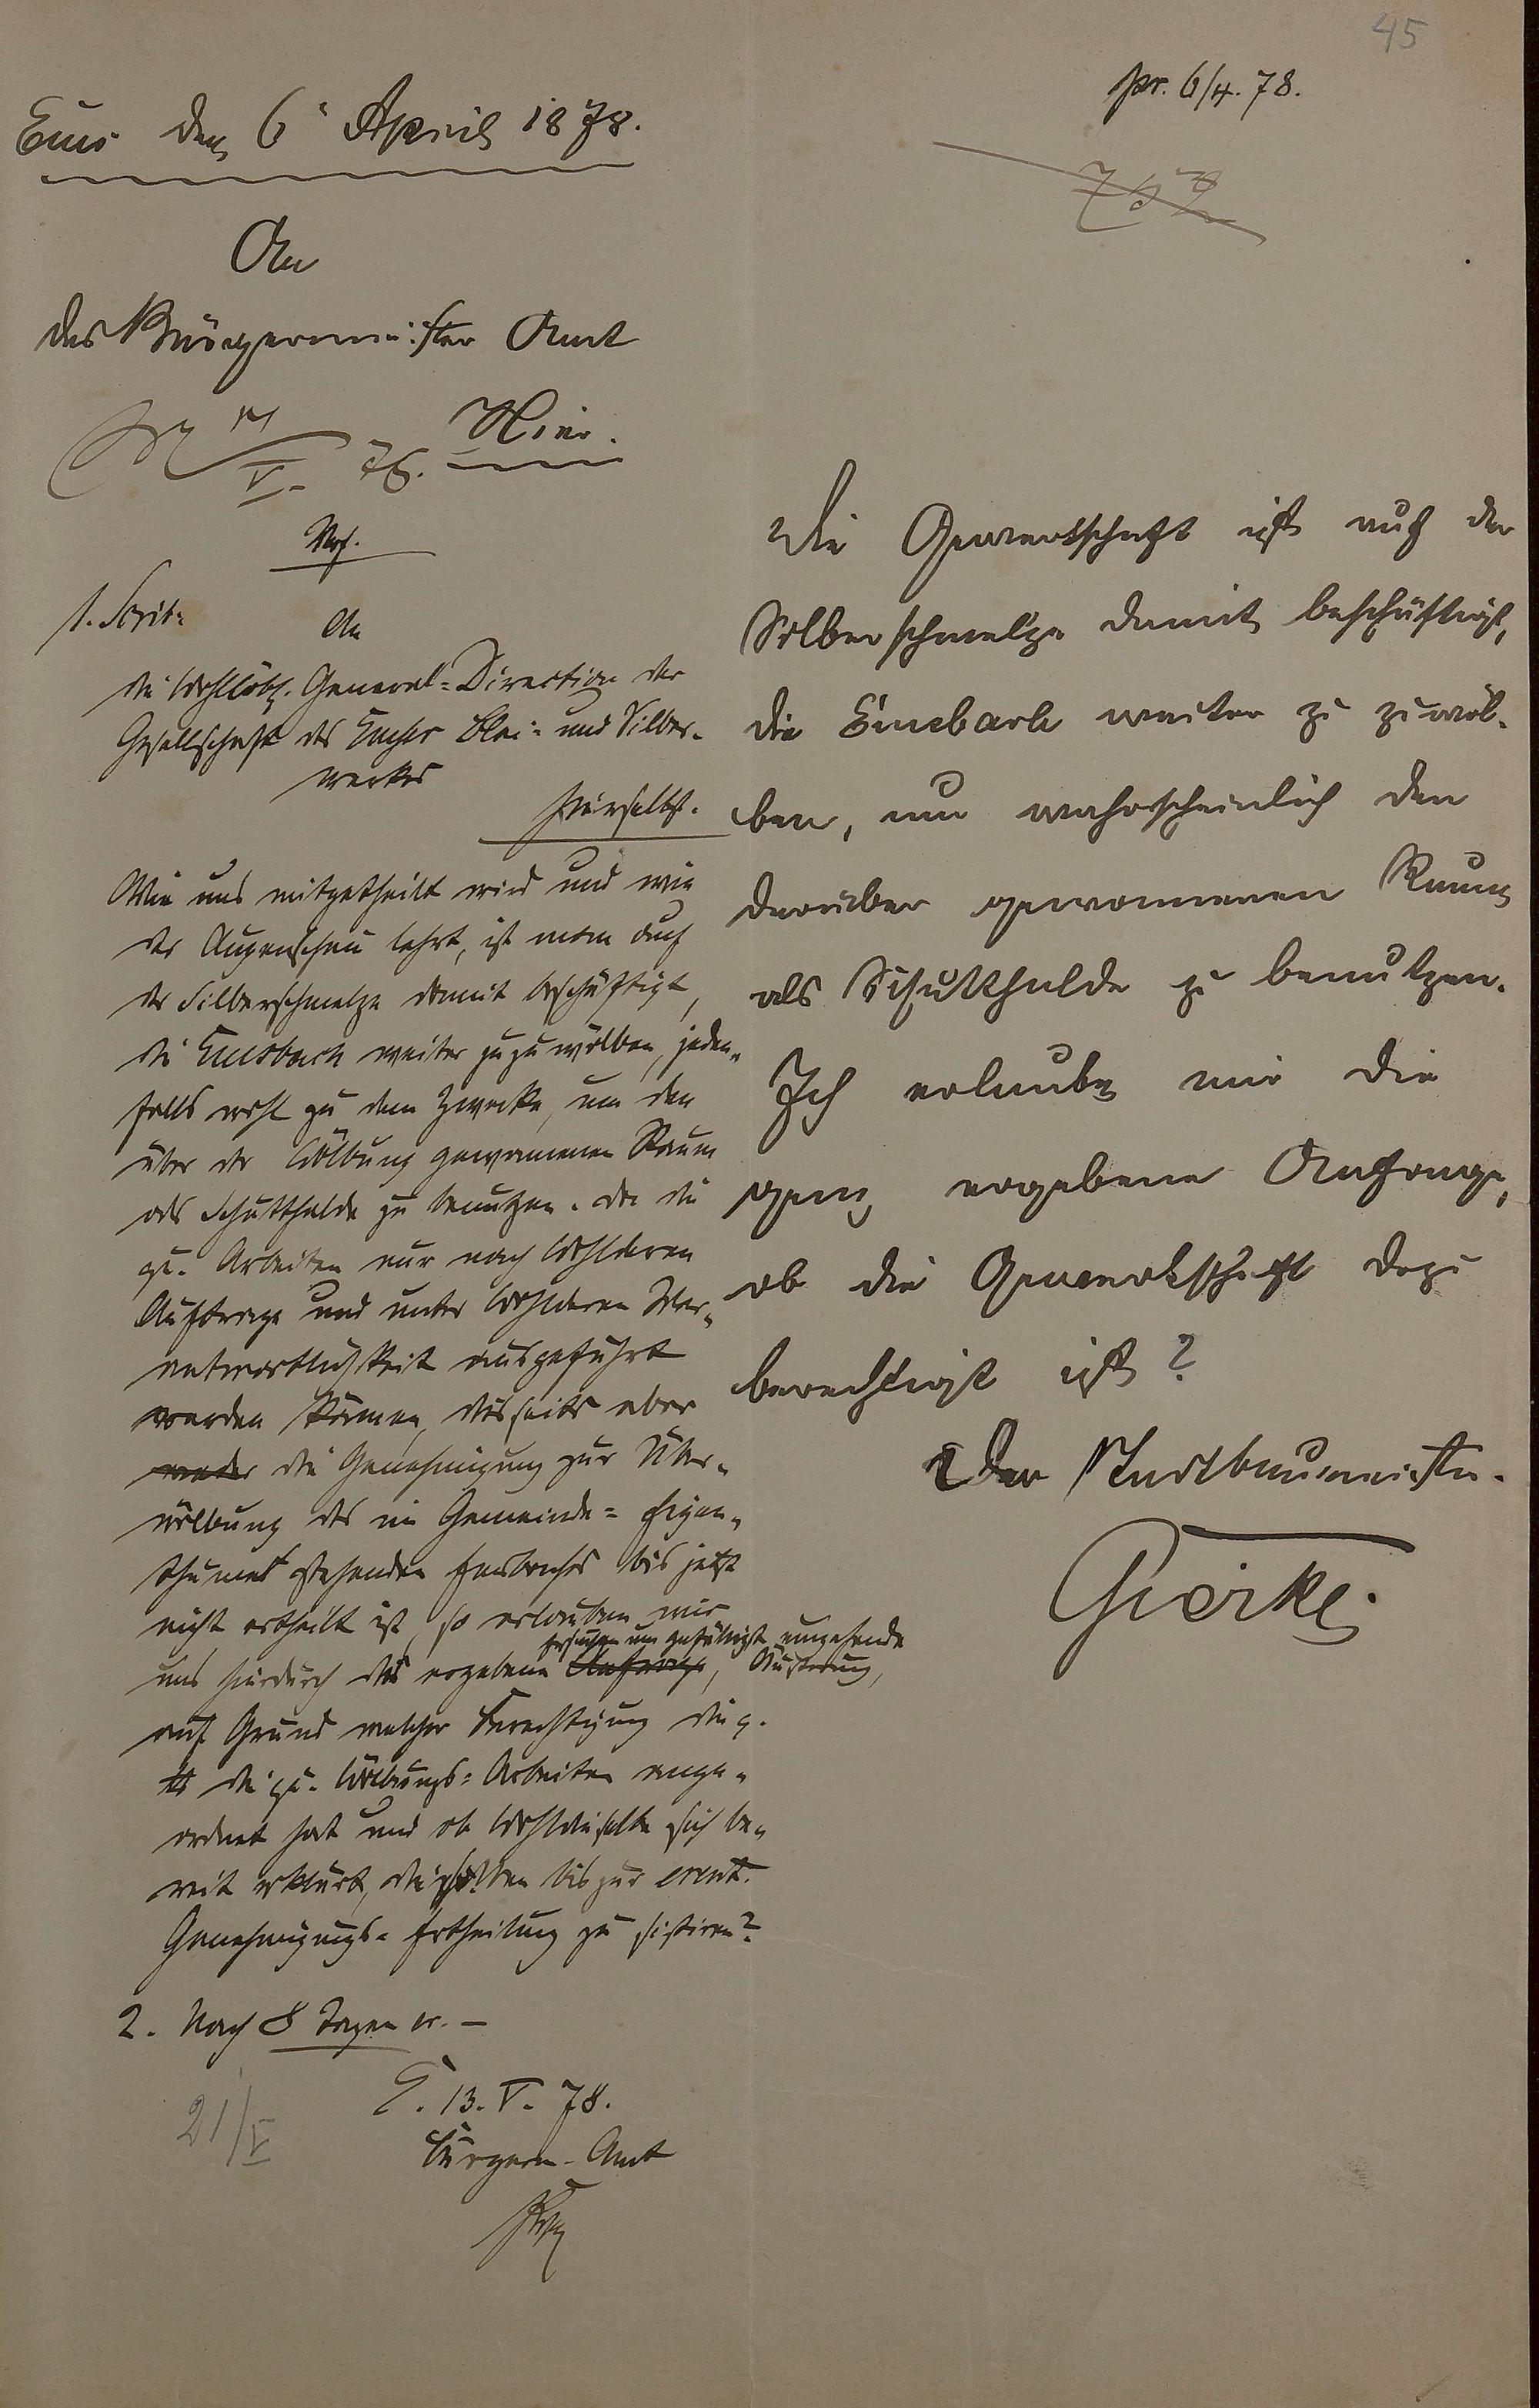 45
pr. 6/4. 78.
Ems den 6' April 1878.
An
das Bürgermeister Amt
Hier.
V. 78.
Die Gewerkschaft ist auf der
Silberschmelze damit beschäftigt,
die Emsbach weiter zu zuwöl-
ben, um wahrscheinlich den
darüber gewonnenen Raum
als Schutthalde zu benutzen.
Ich erlaube mir die
ganz ergebene Anfrage,
ob die Gewerkschaft dazu
berechtigt ist?
Der Stadtbaumeister.
Gierke.
Vfg.
1. Scrib:
An
die Wohllöbl. General-Direction der
Gesellschaft des Emser Blei- und Silber-
werkes
hierselbst.
Wie uns mitgetheilt wird und wie
der Augenschein lehrt, ist man auf
der Silberschmelze damit beschäftigt,
die Emsbach weiter zuzuwölben, jeden-
falls wohl zu dem Zwecke, um den
über der Wölbung gewonnenen Raum
als Schutthalde zu benutzen. Da die
qu. Arbeiten nur nach Wohlderen
Auftrage und unter Wohlderen Ver-
antwortlichkeit ausgeführt
werden können, diesseits aber
weder die Genehmigung zur Über-
wölbung des im Gemeinde-Eigen-
thume stehenden Emsbaches bis jetzt
nicht ertheilt ist, so erlauben wir
Ersuchen um gefälligst umgehende
uns hierdurch das ergebene Anfrage, Äußerung,
auf Grund welcher Berechtigung
die qu. Wölbungs-Arbeiten ange-
ordnet hat und ob Wohldieselbe sich be-
reit erklärt, dieselben bis zur event.
Genehmigungs-Ertheilung zu sistiren?
2. Nach 8 Tagen
E. 13. V. 78.
Bürgerm.-Amt
21/V